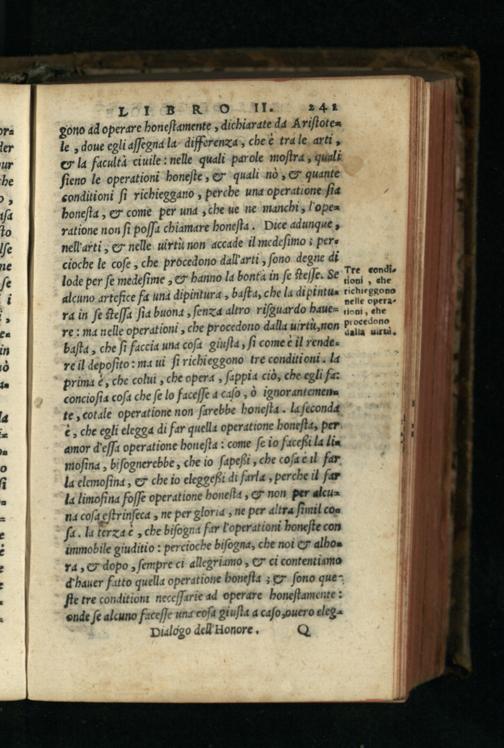 LIBRO II. 241
gono ad operare honestamente, dichiarate da Aristote=
le, doue egli assegna la differenza, che è tra le arti,
& la facultà ciuile: nelle quali parole mostra, quali
sieno le operationi honeste, & quali nò, & quante
conditioni si richieggano, perche una operatione sia
honesta, & come per una, che ue ne manchi, l'ope=
ratione non si possa chiamare honesta. Dice adunque,
nell'arti, & nelle uirtù non accade il medesimo; per=
cioche le cose, che procedono dall'arti, sono degne di
lode per se medesime, & hanno la bontà in se stesse. Se
alcuno artefice fa una dipintura, basta, che la dipintu=
ra in se stessa sia buona, senza altro risguardo haue=
re: ma nelle operationi, che procedono dalla uirtù, non
basta, che si faccia una cosa giusta, si come è il rende=
re il deposito: ma ui si richieggono tre conditioni. la
prima è, che colui, che opera, sappia ciò, che egli fa:
conciosia cosa che se lo facesse a caso, ò ignorantemen=
te, cotale operatione non sarebbe honesta. la seconda
è, che egli elegga di far quella operatione honesta, per
amor d'essa operatione honesta: come se io facessi la li=
mosina, bisognerebbe, che io sapessi, che cosa è il far
la elemosina, & che io eleggessi di farla, perche il far
la limosina fosse operatione honesta, & non per alcu=
na cosa estrinseca, ne per gloria, ne per altra simil co=
sa. la terza è, che bisogna far l'operationi honeste con
immobile giuditio: percioche bisogna, che noi & alho=
ra, & dopo, sempre ci allegriamo, & ci contentiamo
d'hauer fatto quella operatione honesta; & sono que=
ste tre conditioni necessarie ad operare honestamente:
onde se alcuno facesse una cosa giusta a caso, ouero eleg=
Dialogo dell'Honore. Q
Tre condi=
tioni, che
richieggono
nelle opera=
tioni, che
procedono
dalla uirtù.